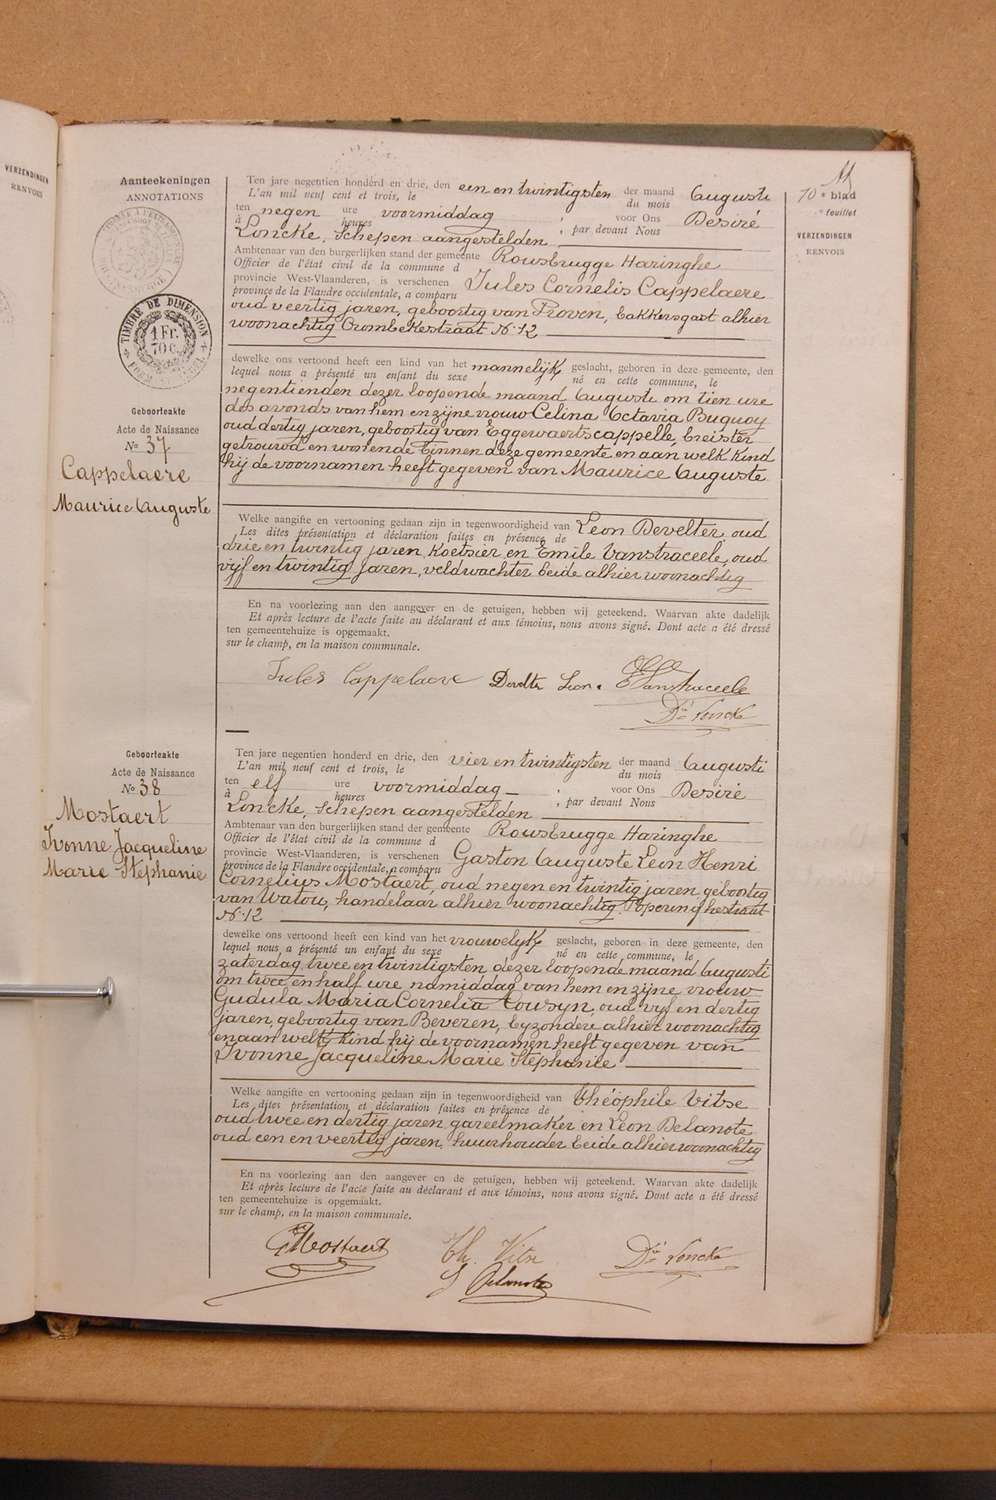 VERZENDINGEN
RENVOIS
Aanteekeningen
ANNOTATIONS
TIMBRE DE DIMENSION
1 Fr.
70c
Geboorteakte
Acte de Naissance
No 37
Cappelaere
Maurice Auguste
Ten jare negentien honderd en drie, den een en twintigsten der maand Augusti
L'an mil neuf cent et trois, le du mois
ten negen ure voormiddag voor Ons Desiré
à heures , par devant Nous
Loncke, Schepen aangestelden
Ambtenaar van den burgerlijken stand der gemeente Rousbrugge Haringhe
Officier de l'état civil de la commune d
provincie West-Vlaanderen, is verschenen Jules Cornelis Cappelaere
province de la Flandre occidentale, a comparu
oud veertig jaren, geboortig van Proven, bakkersgast alhier
woonachtig Crombekestraat No 12
dewelke ons vertoond heeft een kind van het mannelijk geslacht, geboren in deze gemeente, den
lequel nous a présenté un enfant du sexe né en cette commune, le
negentienden dezer loopende maand Auguste om tien ure
des avonds van hem en zijne vrouw Celina Octavia Buquoy
oud dertig jaren, geboortig van Eggewaertscappelle, breister
getrouwd en wonende binnen deze gemeente en aan welk kind
hij de voornamen heeft gegeven van Maurice Auguste
Welke aangifte en vertooning gedaan zijn in tegenwoordigheid van Léon Develter, oud
Les dites présentation et déclaration faites en présence de
drie en twintig jaren, koetsier en Emile Vanstraceele, oud
vijf en twintig jaren, veldwachter beide alhier woonachtig
En na voorlezing aan den aangever en de getuigen, hebben wij geteekend. Waarvan akte dadelijk
Et après lecture de l'acte faite au déclarant et aux témoins, nous avons signé. Dont acte a été dressé
ten gemeentehuize is opgemaakt.
sur le champ, en la maison communale.
Jules Cappelaere Develte Leon. EVanstraceele
Dré Loncke
10e blad
e feuillet
VERZENDINGEN
RENVOIS
Geboorteakte
Acte de Naissance
No 38
Mostaert
Ivonne Jacqueline
Marie Stéphanie
Ten jare negentien honderd en drie, den vier en twintigsten der maand Augusti
L'an mil neuf cent et trois, le du mois
ten elf ure voormiddag voor Ons Desiré
à heures , par devant Nous
Loncke, Schepen aangestelden
Ambtenaar van den burgerlijken stand der gemeente Rousbrugge Haringhe
Officier de l'état civil de la commune d
provincie West-Vlaanderen, is verschenen Gaston Auguste Léon Henri
province de la Flandre occidentale, a comparu
Cornelius Mostaert, oud negen en twintig jaren, geboortig
van Watou, handelaar alhier woonachtig Poperinghestraat
No 12
dewelke ons vertoond heeft een kind van het vrouwelijk geslacht, geboren in deze gemeente, den
lequel nous a présenté un enfant du sexe né en cette commune, le
zaterdag twee en twintigsten dezer loopende maand Augusti
om twee en half ure namiddag van hem en zijne vrouw
Gudula Maria Cornelia Cousyn, oud vijf en dertig
jaren, geboortig van Beveren, byzondere alhier woonachtig
en aan welk kind hij de voornamen heeft gegeven van
Ivonne Jacqueline Marie Stéphanie
Welke aangifte en vertooning gedaan zijn in tegenwoordigheid van Théophile Vitse
Les dites présentation et déclaration faites en présence de
oud twee en dertig jaren, gareelmaker en Léon Delanote
oud een en veertig jaren, huurhouder beide alhier woonachtig
En na voorlezing aan den aangever en de getuigen, hebben wij geteekend. Waarvan akte dadelijk
Et après lecture de l'acte faite au déclarant et aux témoins, nous avons signé. Dont acte a été dressé
ten gemeentehuize is opgemaakt.
sur le champ, en la maison communale.
GMostaert Th. Vitse Dré Loncke
Delanote